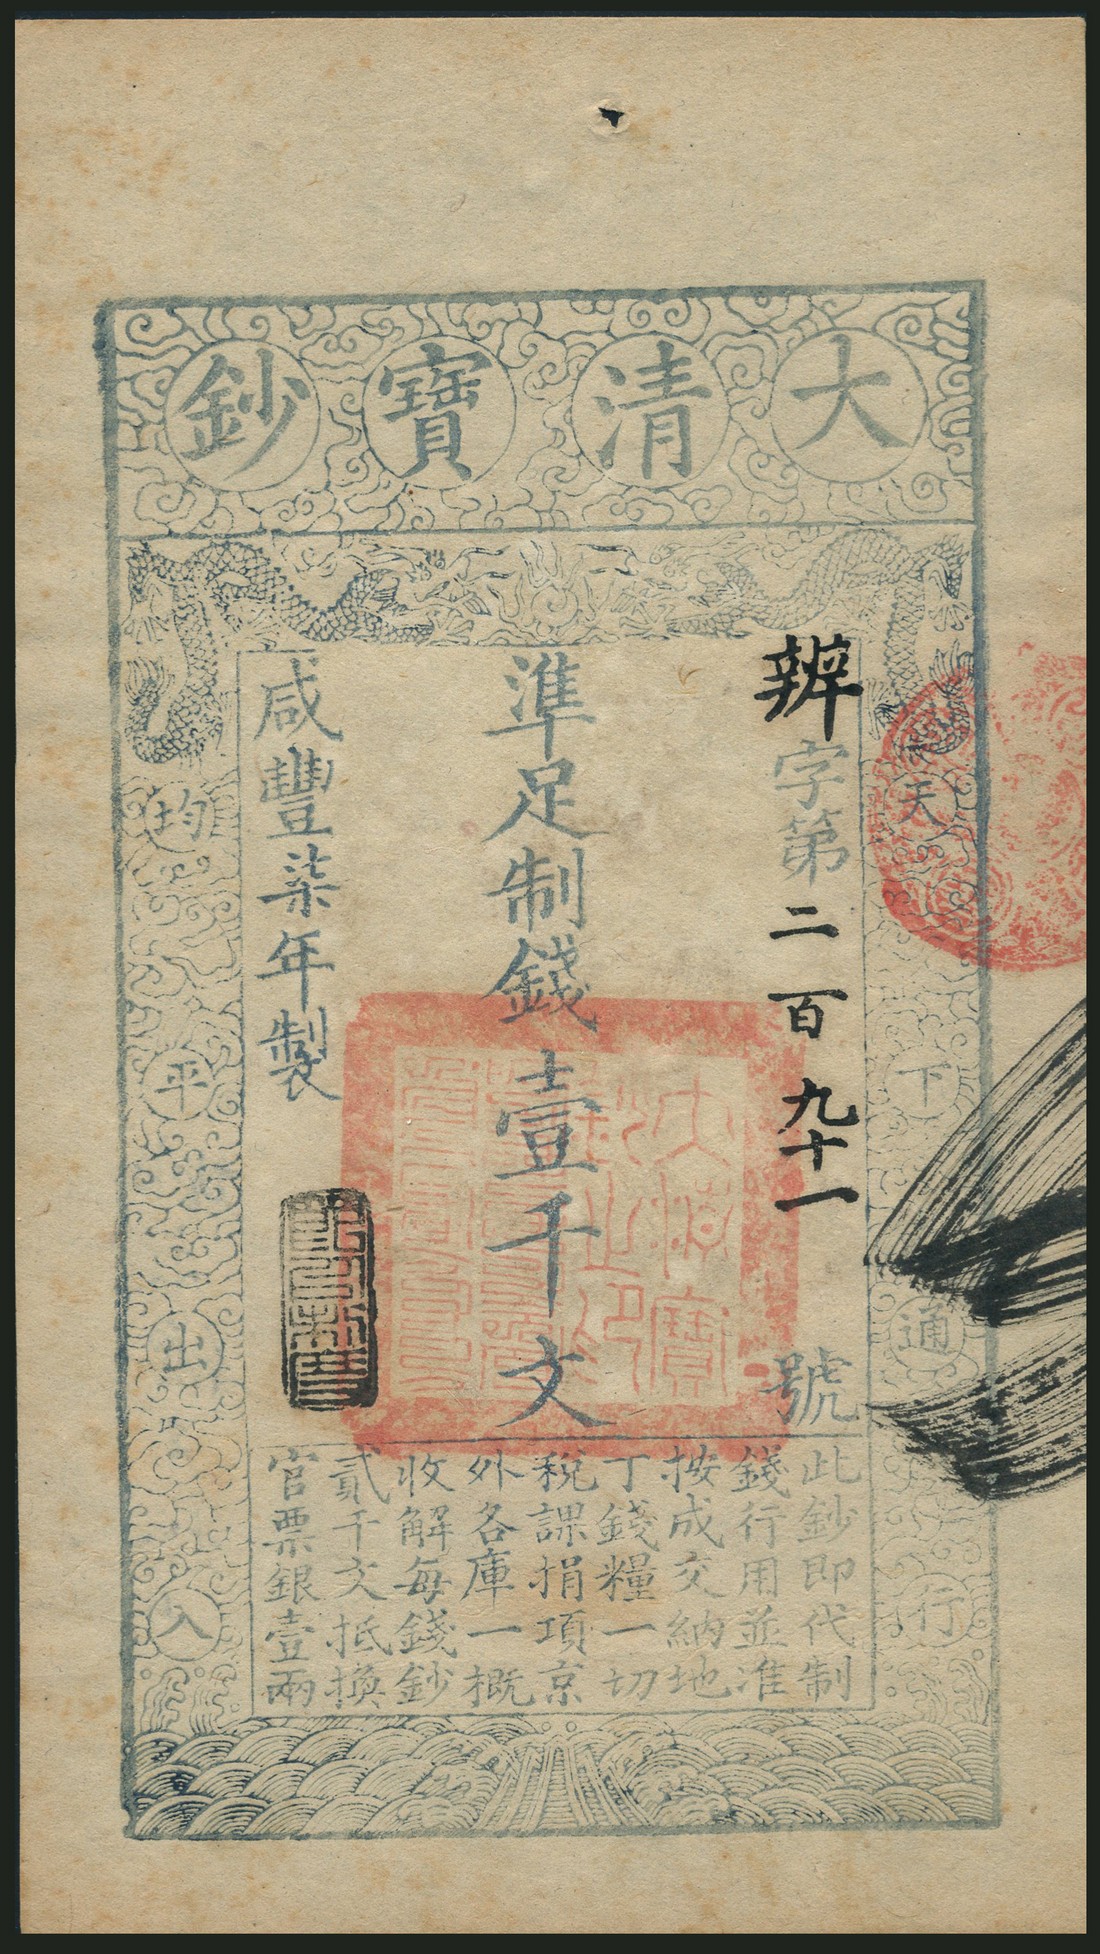 大清寶鈔
天下通行
均平出入
辦字第二百九十一號
準足制錢壹千文
咸豐柒年製
此鈔即代制
錢行用並准
按成交納地
丁錢糧一切
稅課捐項京
外各庫一概
收解每錢鈔
貳千文抵換
官票銀壹兩
大清寶鈔之印